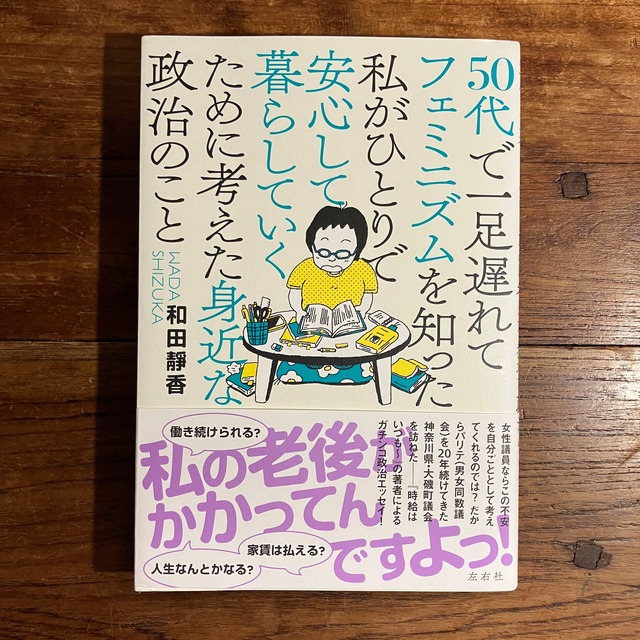 50代で一足遅れて
フェミニズムを知った
私がひとりで
安心して
暮らしていく
ために考えた身近な
政治のこと
WADA
SHIZUKA
和田靜香
働き続けられる?
私の老後が
かかってん
ですよっ!
家賃は払える?
人生なんとかなる?
女性議員ならこの不安
を自分ごととして考え
てくれるのでは?だか
らパリテ(男女同数議
会)を20年続けてきた
神奈川県・大磯町議会
を訪ねた『時給は
いつも〜』の著者による
ガチンコ政治エッセイ!
左右社